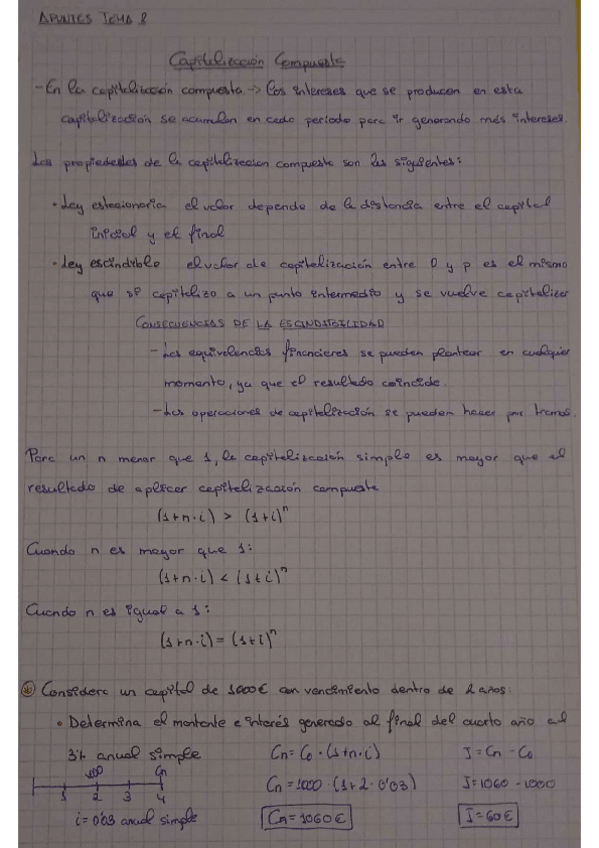 APUNTES TEMA 8
Capitalización Compuesta
- En la capitalización compuesta -> Los intereses que se producen en esta
capitalización se acumulan en cada periodo para ir generando más intereses.
Las propiedades de la capitalización compuesta son las siguientes:
• Ley estacionaria el valor depende de la distancia entre el capital
inicial y el final
• Ley escindible el valor de capitalización entre 0 y p es el mismo
que si capitalizo a un punto intermedio y se vuelve capitalizar
CONSECUENCIAS DE LA ESCINDIBILIDAD
- Las equivalencias financieras se pueden plantear en cualquier
momento, ya que el resultado coincide.
- Las operaciones de capitalización se pueden hacer por tramos.
Para un n menor que 1, la capitalización simple es mayor que el
resultado de aplicar capitalización compuesta
(1+n·i) > (1+i)^n
Cuando n es mayor que 1:
(1+n·i) < (1+i)^n
Cuando n es igual a 1:
(1+n·i) = (1+i)^n
Considera un capital de 1000€ con vencimiento dentro de 2 años:
• Determina el montante e interés generado al final del cuarto año al
3% anual simple Cn = C0 · (1+n·i) I = Cn - C0
1000 Cn
1 2 3 4
Cn = 1000 · (1+2·0'03) I = 1060 - 1000
i = 0'03 anual simple Cn = 1060€ I = 60€